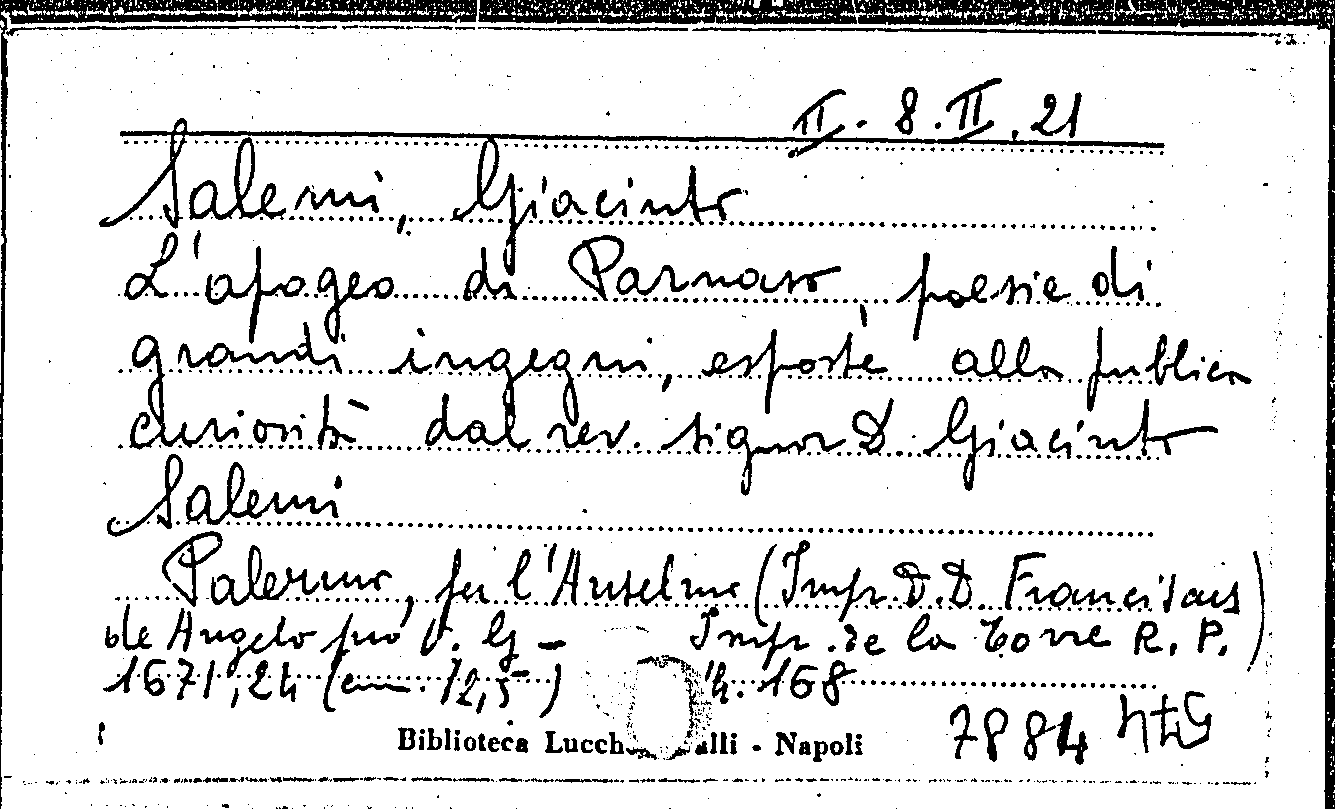 II. 8. II. 21
Salemi, Giacinto
L'apogeo di Parnaso, poesie di
grandi ingegni, esposte alla publica
curiosità dal rev. signor D. Giacinto
Salemi
Palermo, per l'Anselmo (Impr. D. D. Franciscus
de Angelo pro V. G – Impr. de la Torre R. P.)
1671, 24 (cm. 12,5) p. 168
Biblioteca Lucch alli - Napoli 7884